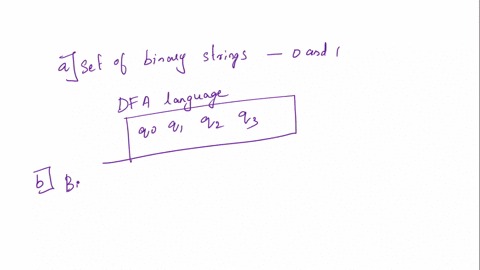 a] Set of binary strings — 0 and 1
DFA language
q0 q1 q2 q3
b] Bi